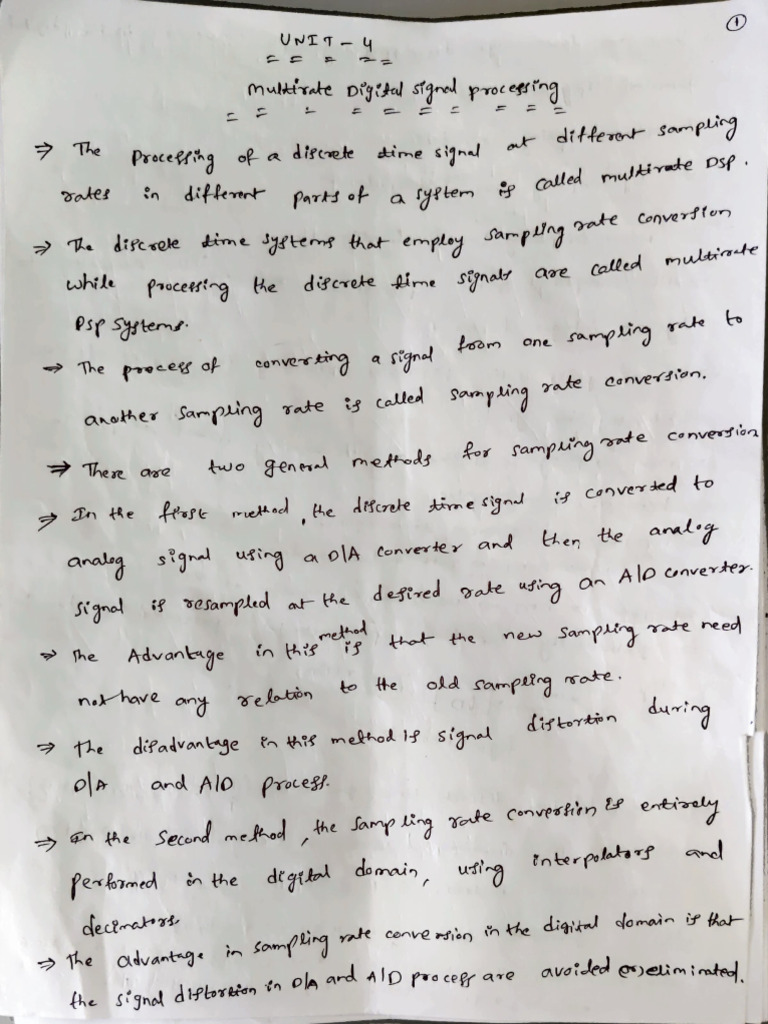 ①
UNIT - 4
Multirate Digital signal processing
⇒ The processing of a discrete time signal at different sampling
rates in different parts of a system is called multirate DSP.
⇒ The discrete time systems that employ sampling rate conversion
while processing the discrete time signals are called multirate
DSP systems.
⇒ The process of converting a signal from one sampling rate to
another sampling rate is called sampling rate conversion.
⇒ There are two general methods for sampling rate conversion
⇒ In the first method, the discrete time signal is converted to
analog signal using a D/A converter and then the analog
signal is resampled at the desired rate using an A/D converter.
⇒ The Advantage in this method is that the new sampling rate need
not have any relation to the old sampling rate.
⇒ The disadvantage in this method is signal distortion during
D/A and A/D process.
⇒ In the second method, the sampling rate conversion is entirely
performed in the digital domain, using interpolators and
decimators.
⇒ The advantage in sampling rate conversion in the digital domain is that
the signal distortion in D/A and A/D process are avoided (or) eliminated.